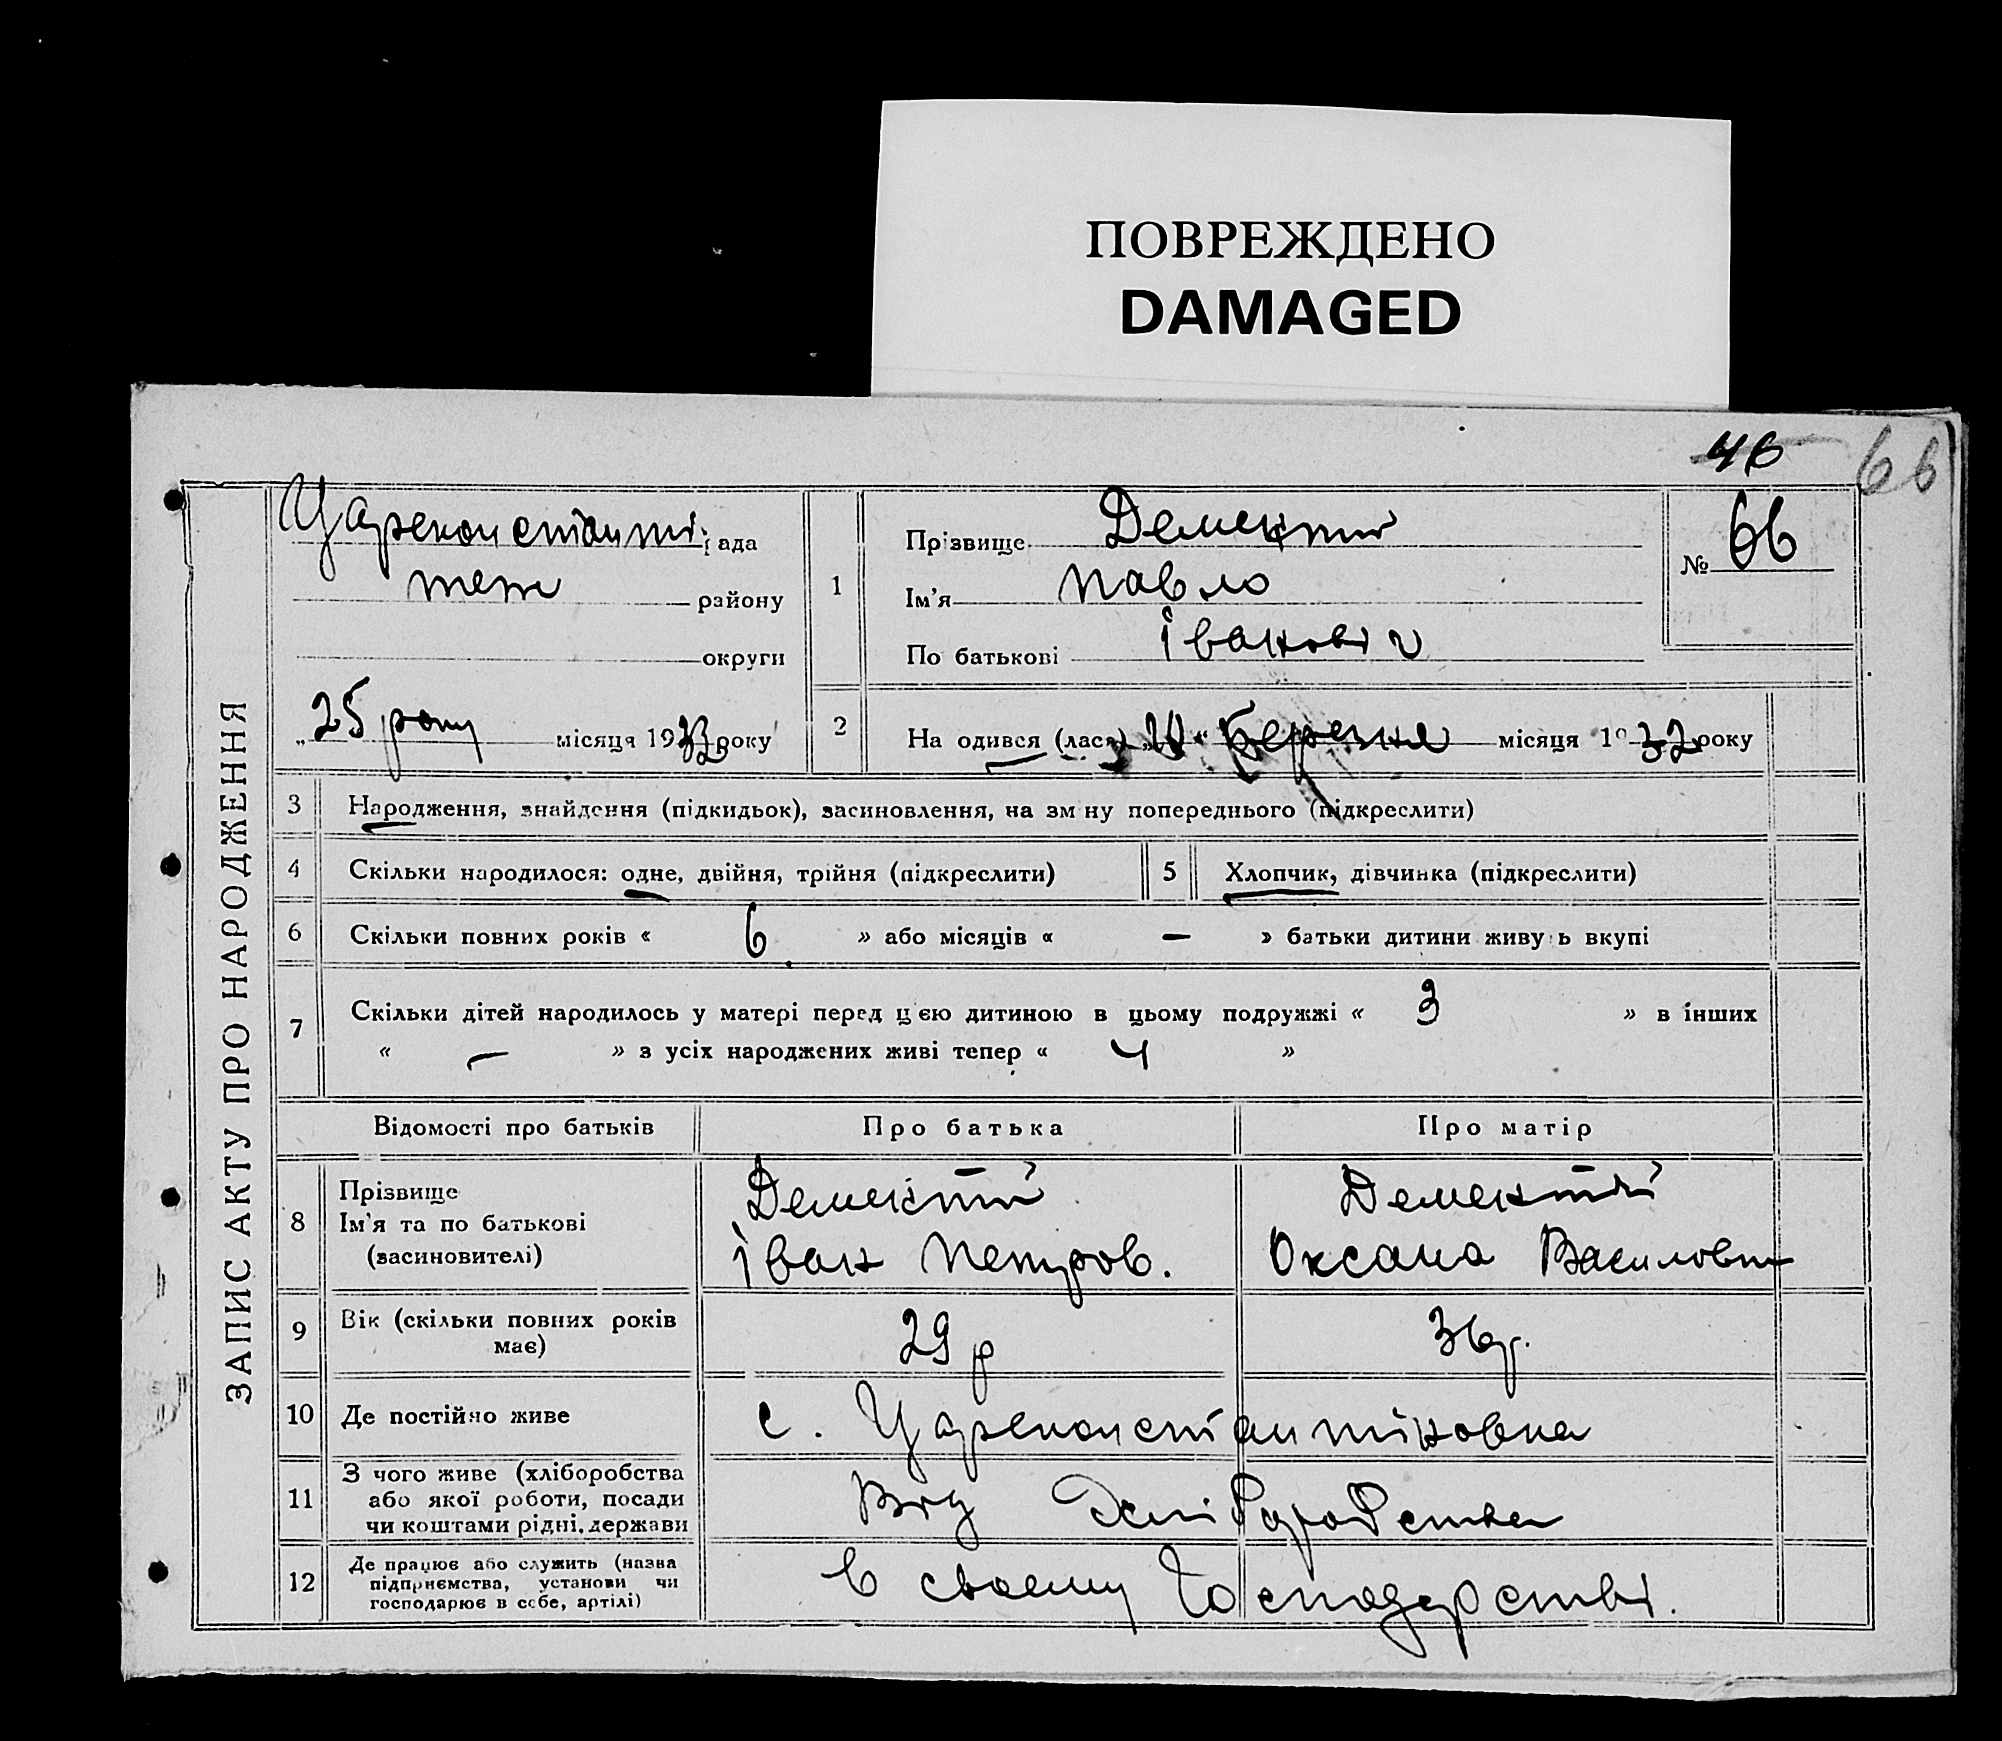 ПОВРЕЖДЕНО
DAMAGED
46 66
ЗАПИС АКТУ ПРО НАРОДЖЕННЯ
Царекостянти рада
теж району
округи
„25 року місяця 1932 року
1
Прізвище Дементій
Ім'я Павло
По батькові Іванович
№ 66
2 На одився (лася) березня місяця 19 32 року
3 Народження, знайдення (підкидьок), засиновлення, на зм ну попереднього (підкреслити)
4 Скільки народилося: одне, двійня, трійня (підкреслити) 5 Хлопчик, дівчинка (підкреслити)
6 Скільки повних років « 6 » або місяців « — » батьки дитини живу ь вкупі
7 Скільки дітей народилось у матері перед цією дитиною в цьому подружжі « 3 » в інших
« — » з усіх народжених живі тепер « 4 »
Відомості про батьків Про батька Про матір
8 Прізвище Дементій Дементій
Ім'я та по батькові Іван Петров. Оксана Василовн
(засиновителі)
9 Вік (скільки повних років має) 29 р 36 р.
10 Де постійно живе с. Цареконстантиновка
11 З чого живе (хліборобства
або якої роботи, посади
чи коштами рідні, держави
Від хліборобства
12 Де працює або служить (назва
підприємства, установи чи
господарює в себе, артілі)
в своему господарстві.